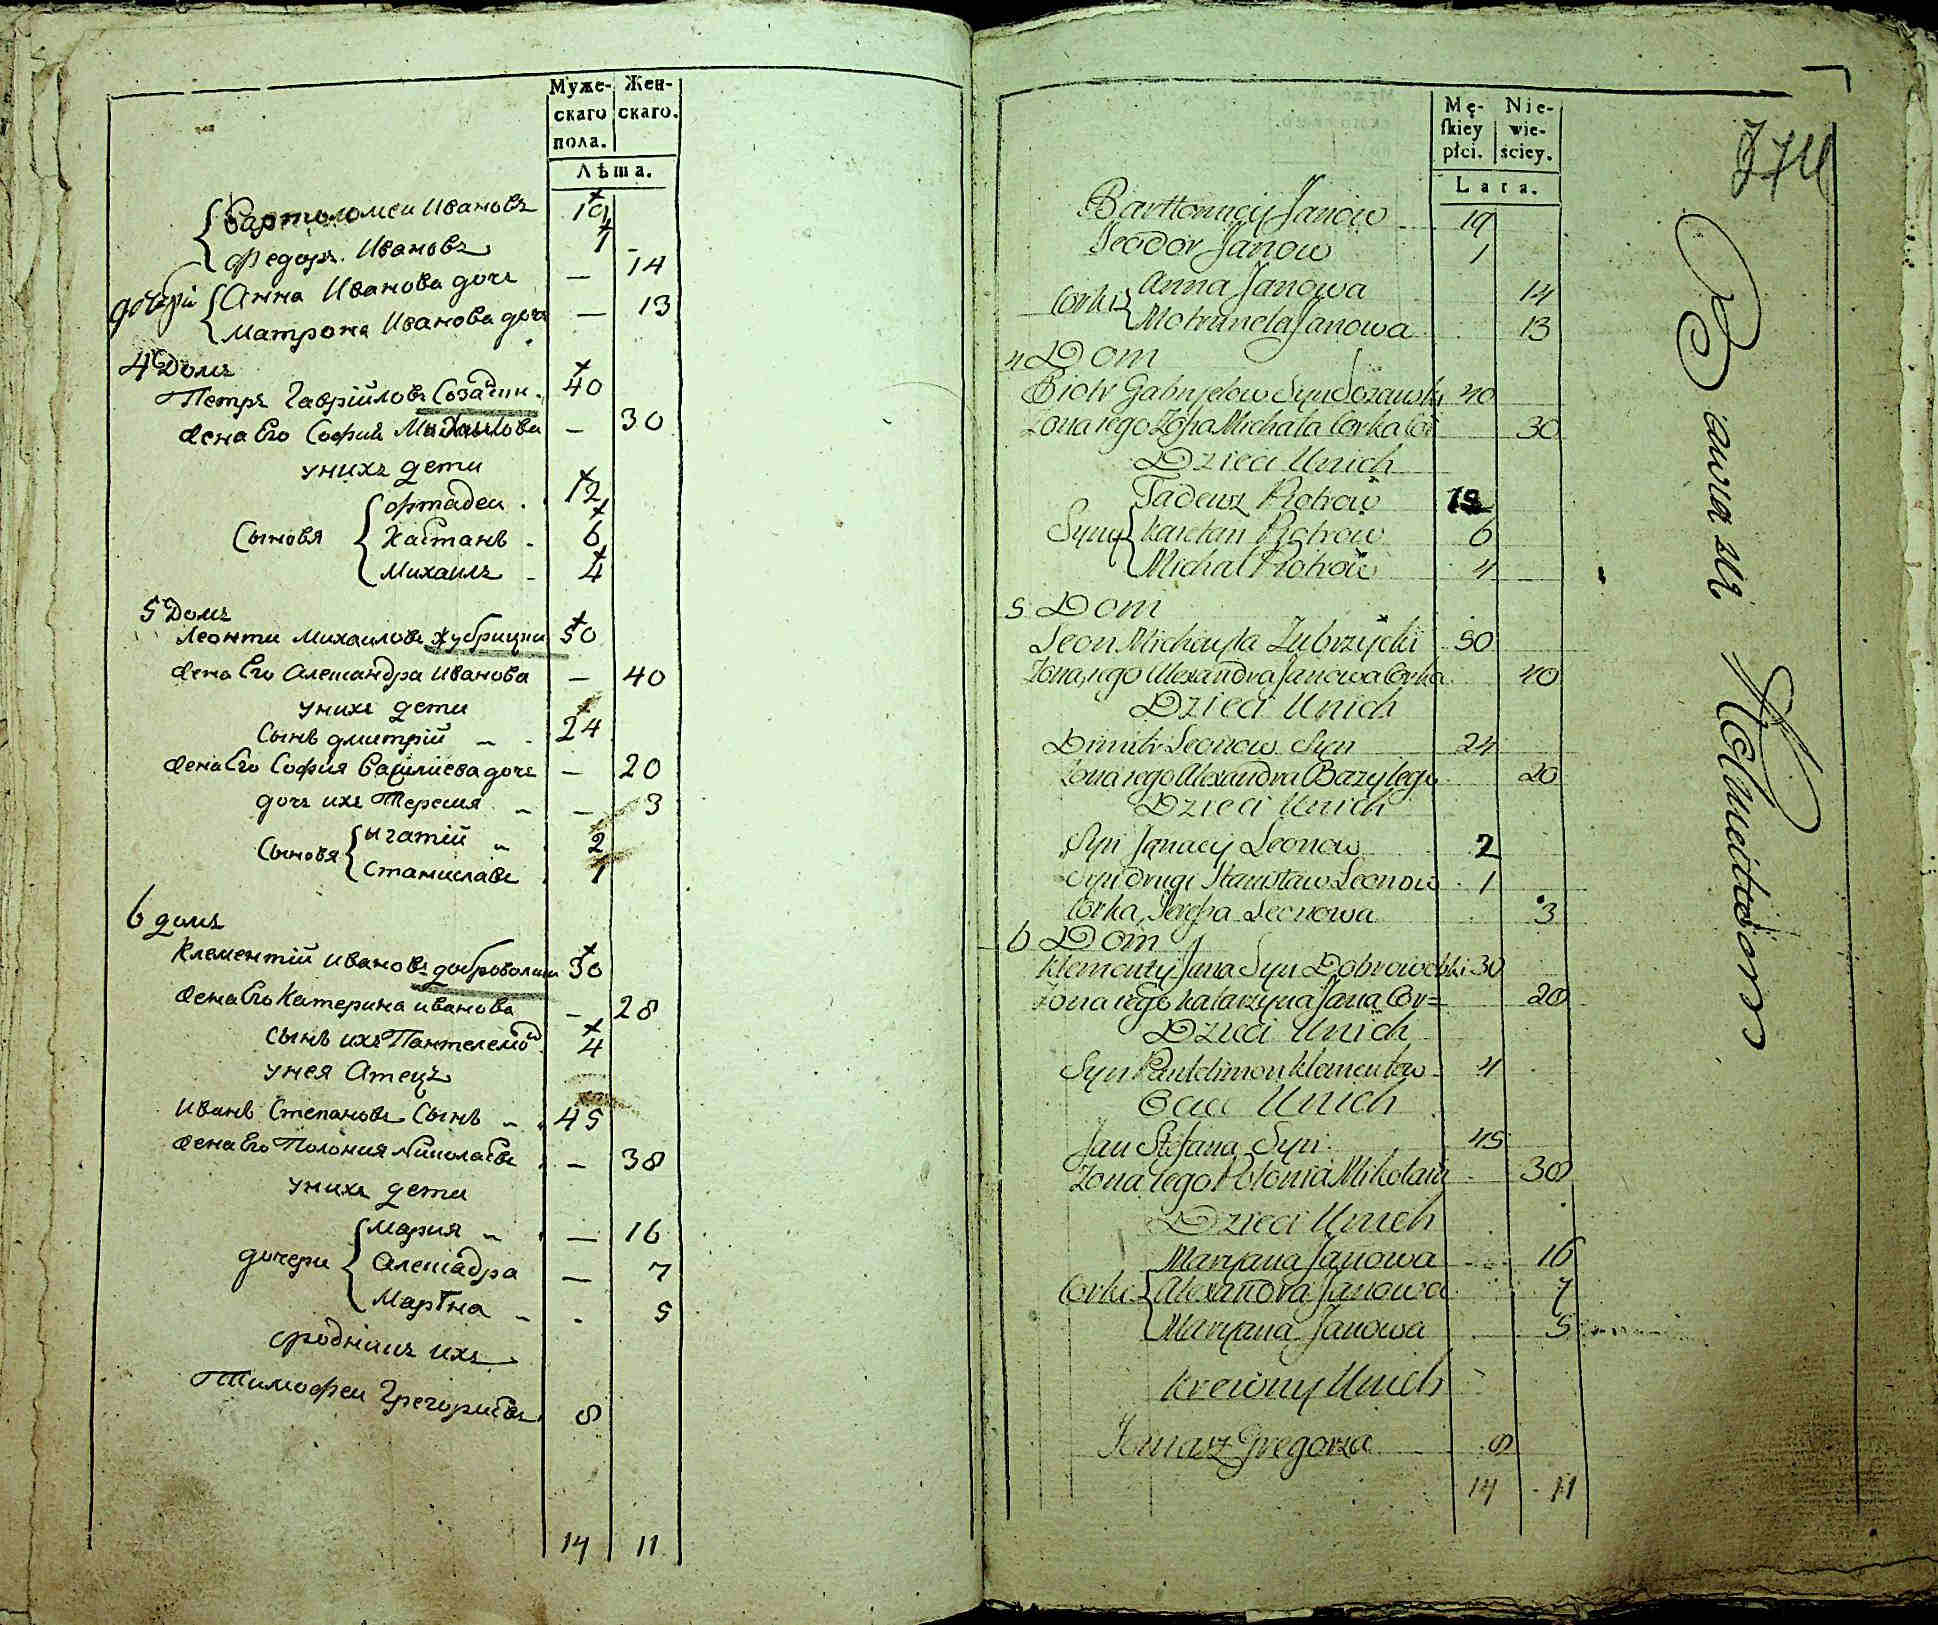 Муже- Жен-
скаго скаго.
пола.
Лѣта.
Бартоломеи Ивановъ 10
Федоръ Ивановъ 1
дочери Анна Иванова доче — 14
Матрона Иванова доче — 13
4 Домъ
Петръ Гаврійловъ 40
жена Его Софий Михаилова — 30
унихъ дети
Сыновя Фтадеи 12
Каетанъ 6
Михаилъ 4
5 Домъ
Леонти Михаиловъ Жубрицки 50
жена Его Алешандра Иванова — 40
унихъ дети
Сынъ дмитрій 24
жена Его София Василиева доче — 20
доче ихъ Терешя — 3
Сыновя Игнатій 2
Станиславъ 1
6 домъ
Клементій Ивановъ доброволски 30
жена Его Катерина иванова — 28
сынъ ихъ Пантелемо 4
унея Отецъ
Иванъ Степановъ Сынъ 45
жена Его Полония Николаева — 38
унихъ дети
дочери Мария — 16
Алешадра — 7
Марина 5
сродникъ ихъ
Тимофеи Грегориевъ 8
14 11
Mę- Nie-
ſkiey wie-
płci. ściey.
Lata.
Barttomiey Janow 19
Teodor Janow 1
Corki Anna Janowa 14
Motrunela Janowa 13
4 Dom
Piotr Gabryelow Syn Sozanski 40
Zona iego Zofia Michała Corka 30
Dzieci Unich
Tadeusz Piotrow 12
Syny Kaietan Piotrow 6
Michał Piotrow 4
5 Dom
Leon Michayła Zubrzycki 50
Zona iego Alexandra Janowa Corka 40
Dzieci Unich
Dmitr Leonow Syn 24
Zona iego Alexandra Bazylego 20
Dzieci Unich
Syn Jgnacy Leonow 2
Syn drugi Stanisław Leonow 1
Corka Leonowa 3
6 Dom
Klementy Jana Syn Dobrowolski 30
Zona iego Katarzyna Jana Cor= 28
Dzieci Unich
Syn Pantelimon Klementow 4
Ociec Unich
Jan Stefana Syn 45
Zona iego Polonia Mikołaia 38
Dzieci Unich
Maryana Janowa 16
Corki Alexandra Janowa 7
Maryana Janowa 5
Krewny Unich
Tomasz Gregorza 8
14 11